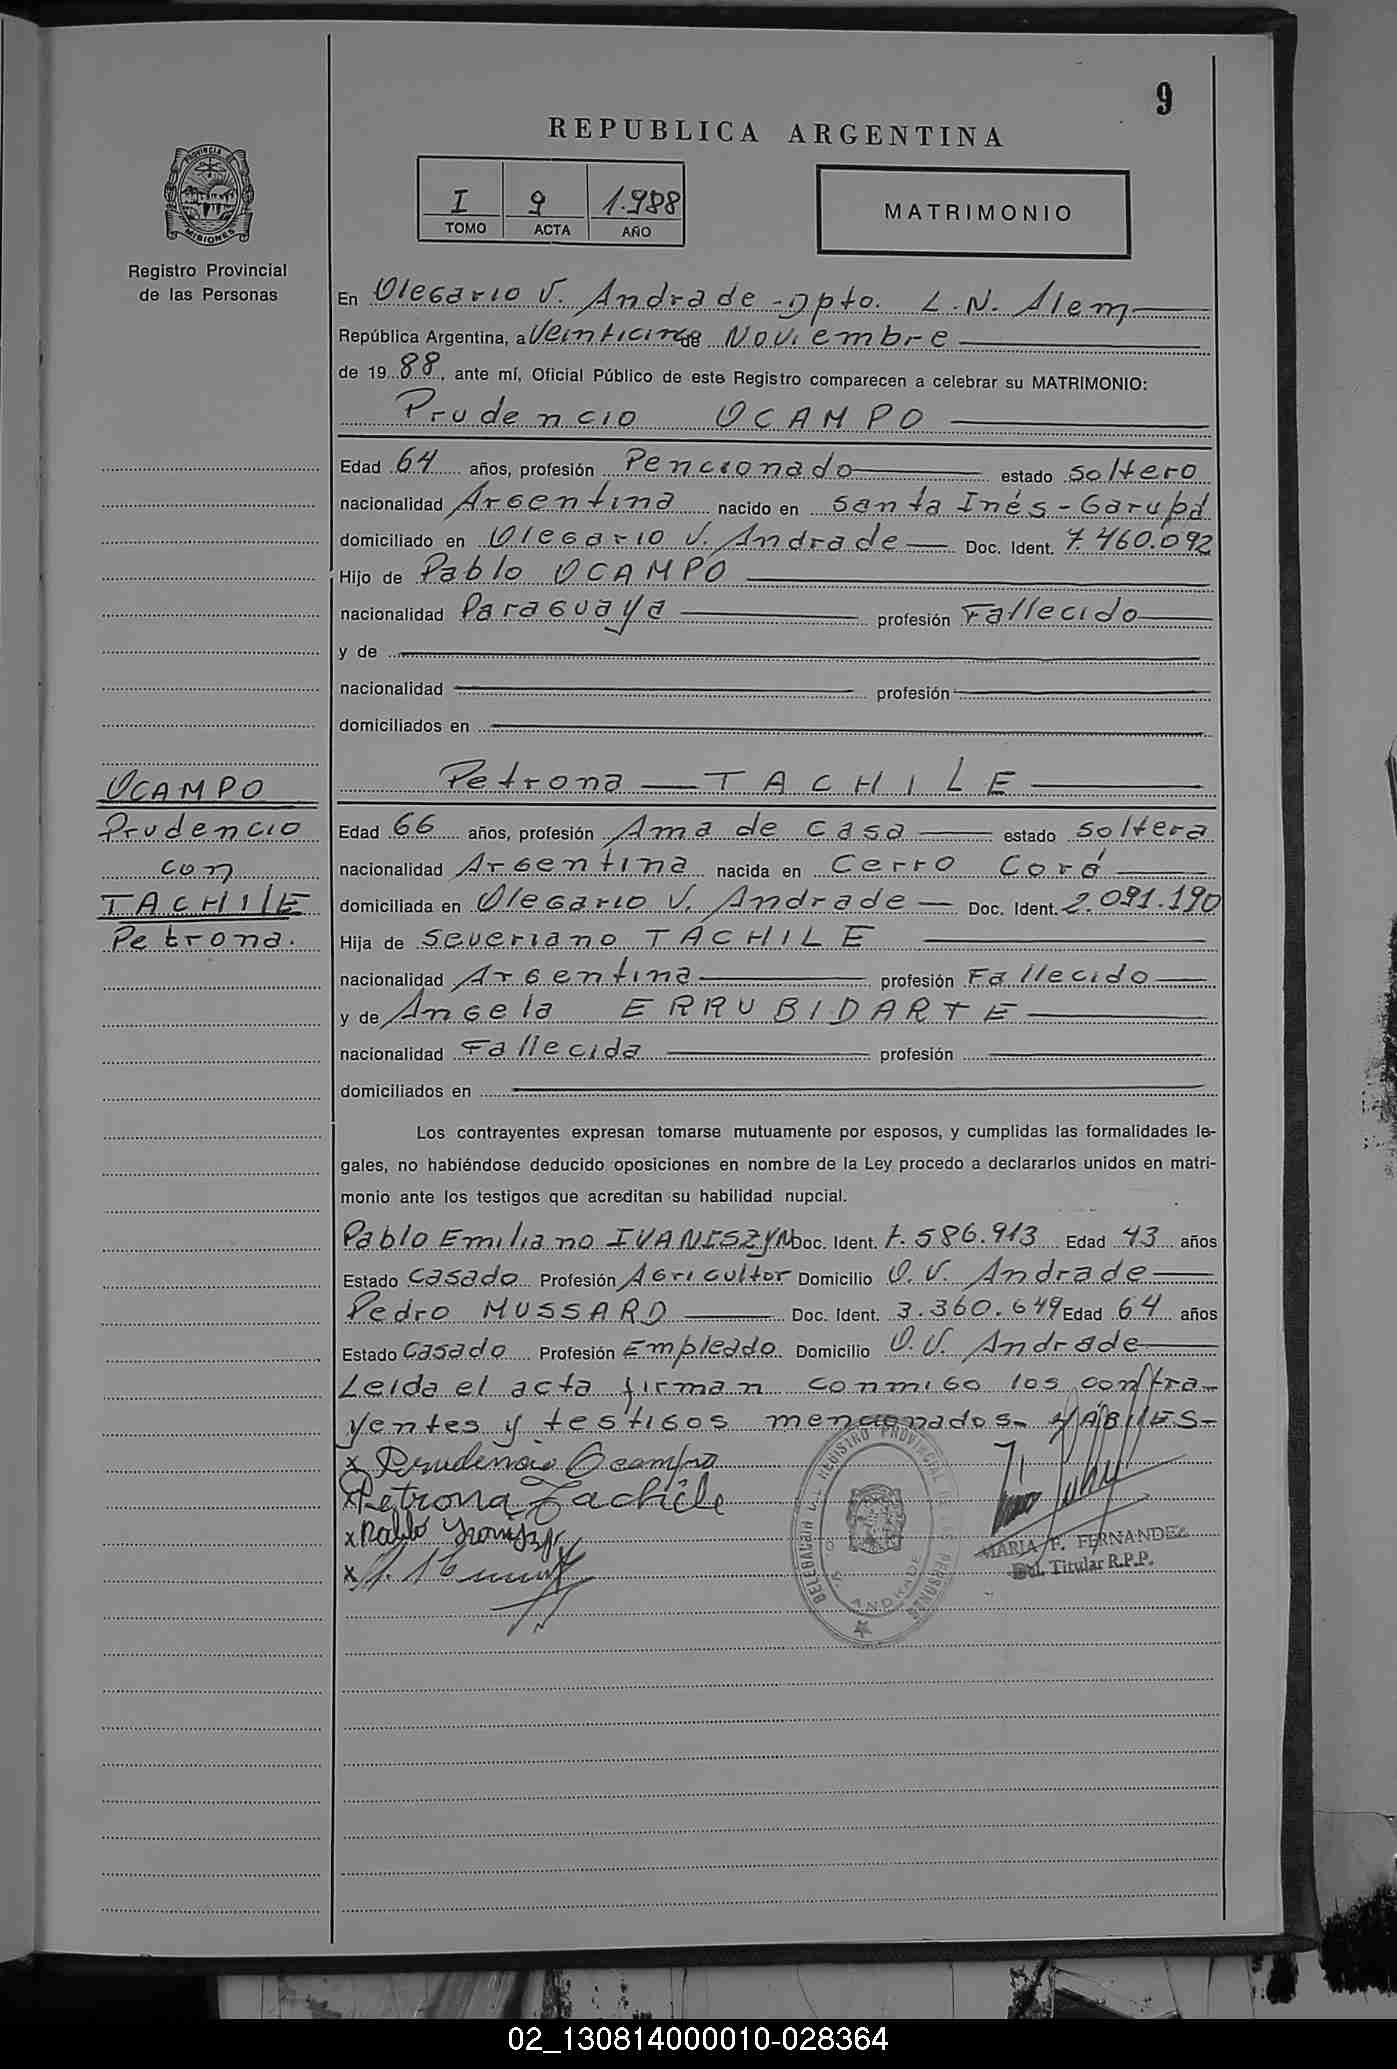 9
REPUBLICA ARGENTINA
I 9 1.988
TOMO ACTA AÑO
MATRIMONIO
PROVINCIA DE MISIONES
Registro Provincial
de las Personas
En Olegario V. Andrade - Dpto. L. N. Alem
República Argentina, a Veinticinco de Noviembre
de 19 88, ante mí, Oficial Público de este Registro comparecen a celebrar su MATRIMONIO:
Prudencio OCAMPO
Edad 64 años, profesión Pencionado estado soltero
nacionalidad Argentina nacido en Santa Inés - Garupá
domiciliado en Olegario V. Andrade Doc. Ident. 7.460.092
Hijo de Pablo OCAMPO
nacionalidad Paraguaya profesión Fallecido
y de
nacionalidad profesión
domiciliados en
OCAMPO
Prudencio
con
TACHILE
Petrona.
Petrona TACHILE
Edad 66 años, profesión Ama de casa estado soltera
nacionalidad Argentina nacida en Cerro Corá
domiciliada en Olegario V. Andrade Doc. Ident. 2.091.190
Hija de Severiano TACHILE
nacionalidad Argentina profesión Fallecido
y de Angela ERRUBIDARTE
nacionalidad Fallecida profesión
domiciliados en
Los contrayentes expresan tomarse mutuamente por esposos, y cumplidas las formalidades le-
gales, no habiéndose deducido oposiciones en nombre de la Ley procedo a declararlos unidos en matri-
monio ante los testigos que acreditan su habilidad nupcial.
Pablo Emiliano IVANISZYN Doc. Ident. 7.586.913 Edad 43 años
Estado Casado Profesión Agricultor Domicilio O. V. Andrade
Pedro MUSSARD Doc. Ident. 3.360.649 Edad 64 años
Estado Casado Profesión Empleado Domicilio O. V. Andrade
Leida el acta firman conmigo los contra-
yentes y testigos mencionados - HABILES-
x Prudencio Ocampo
x Petrona Tachile
x Pablo
x
DELEGACION DEL REGISTRO PROVINCIAL DE LAS PERSONAS
ANDRADE
MARIA F. FERNANDEZ
Del. Titular R.P.P.
02_130814000010-028364